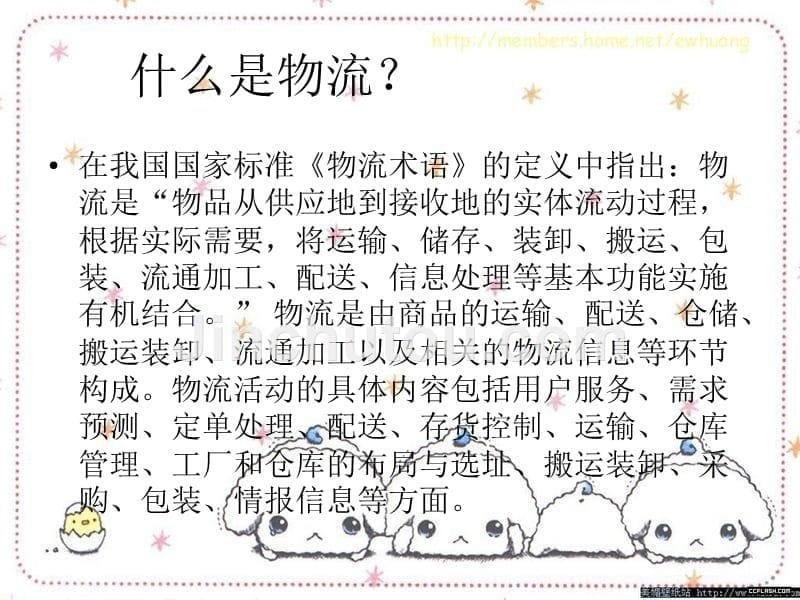 http://members.home.net/ewhuang
什么是物流？
• 在我国国家标准《物流术语》的定义中指出：物
流是“物品从供应地到接收地的实体流动过程，
根据实际需要，将运输、储存、装卸、搬运、包
装、流通加工、配送、信息处理等基本功能实施
有机结合。” 物流是由商品的运输、配送、仓储、
搬运装卸、流通加工以及相关的物流信息等环节
构成。物流活动的具体内容包括用户服务、需求
预测、定单处理、配送、存货控制、运输、仓库
管理、工厂和仓库的布局与选址、搬运装卸、采
购、包装、情报信息等方面。
Jinchutou.com
CCFLASH.COM